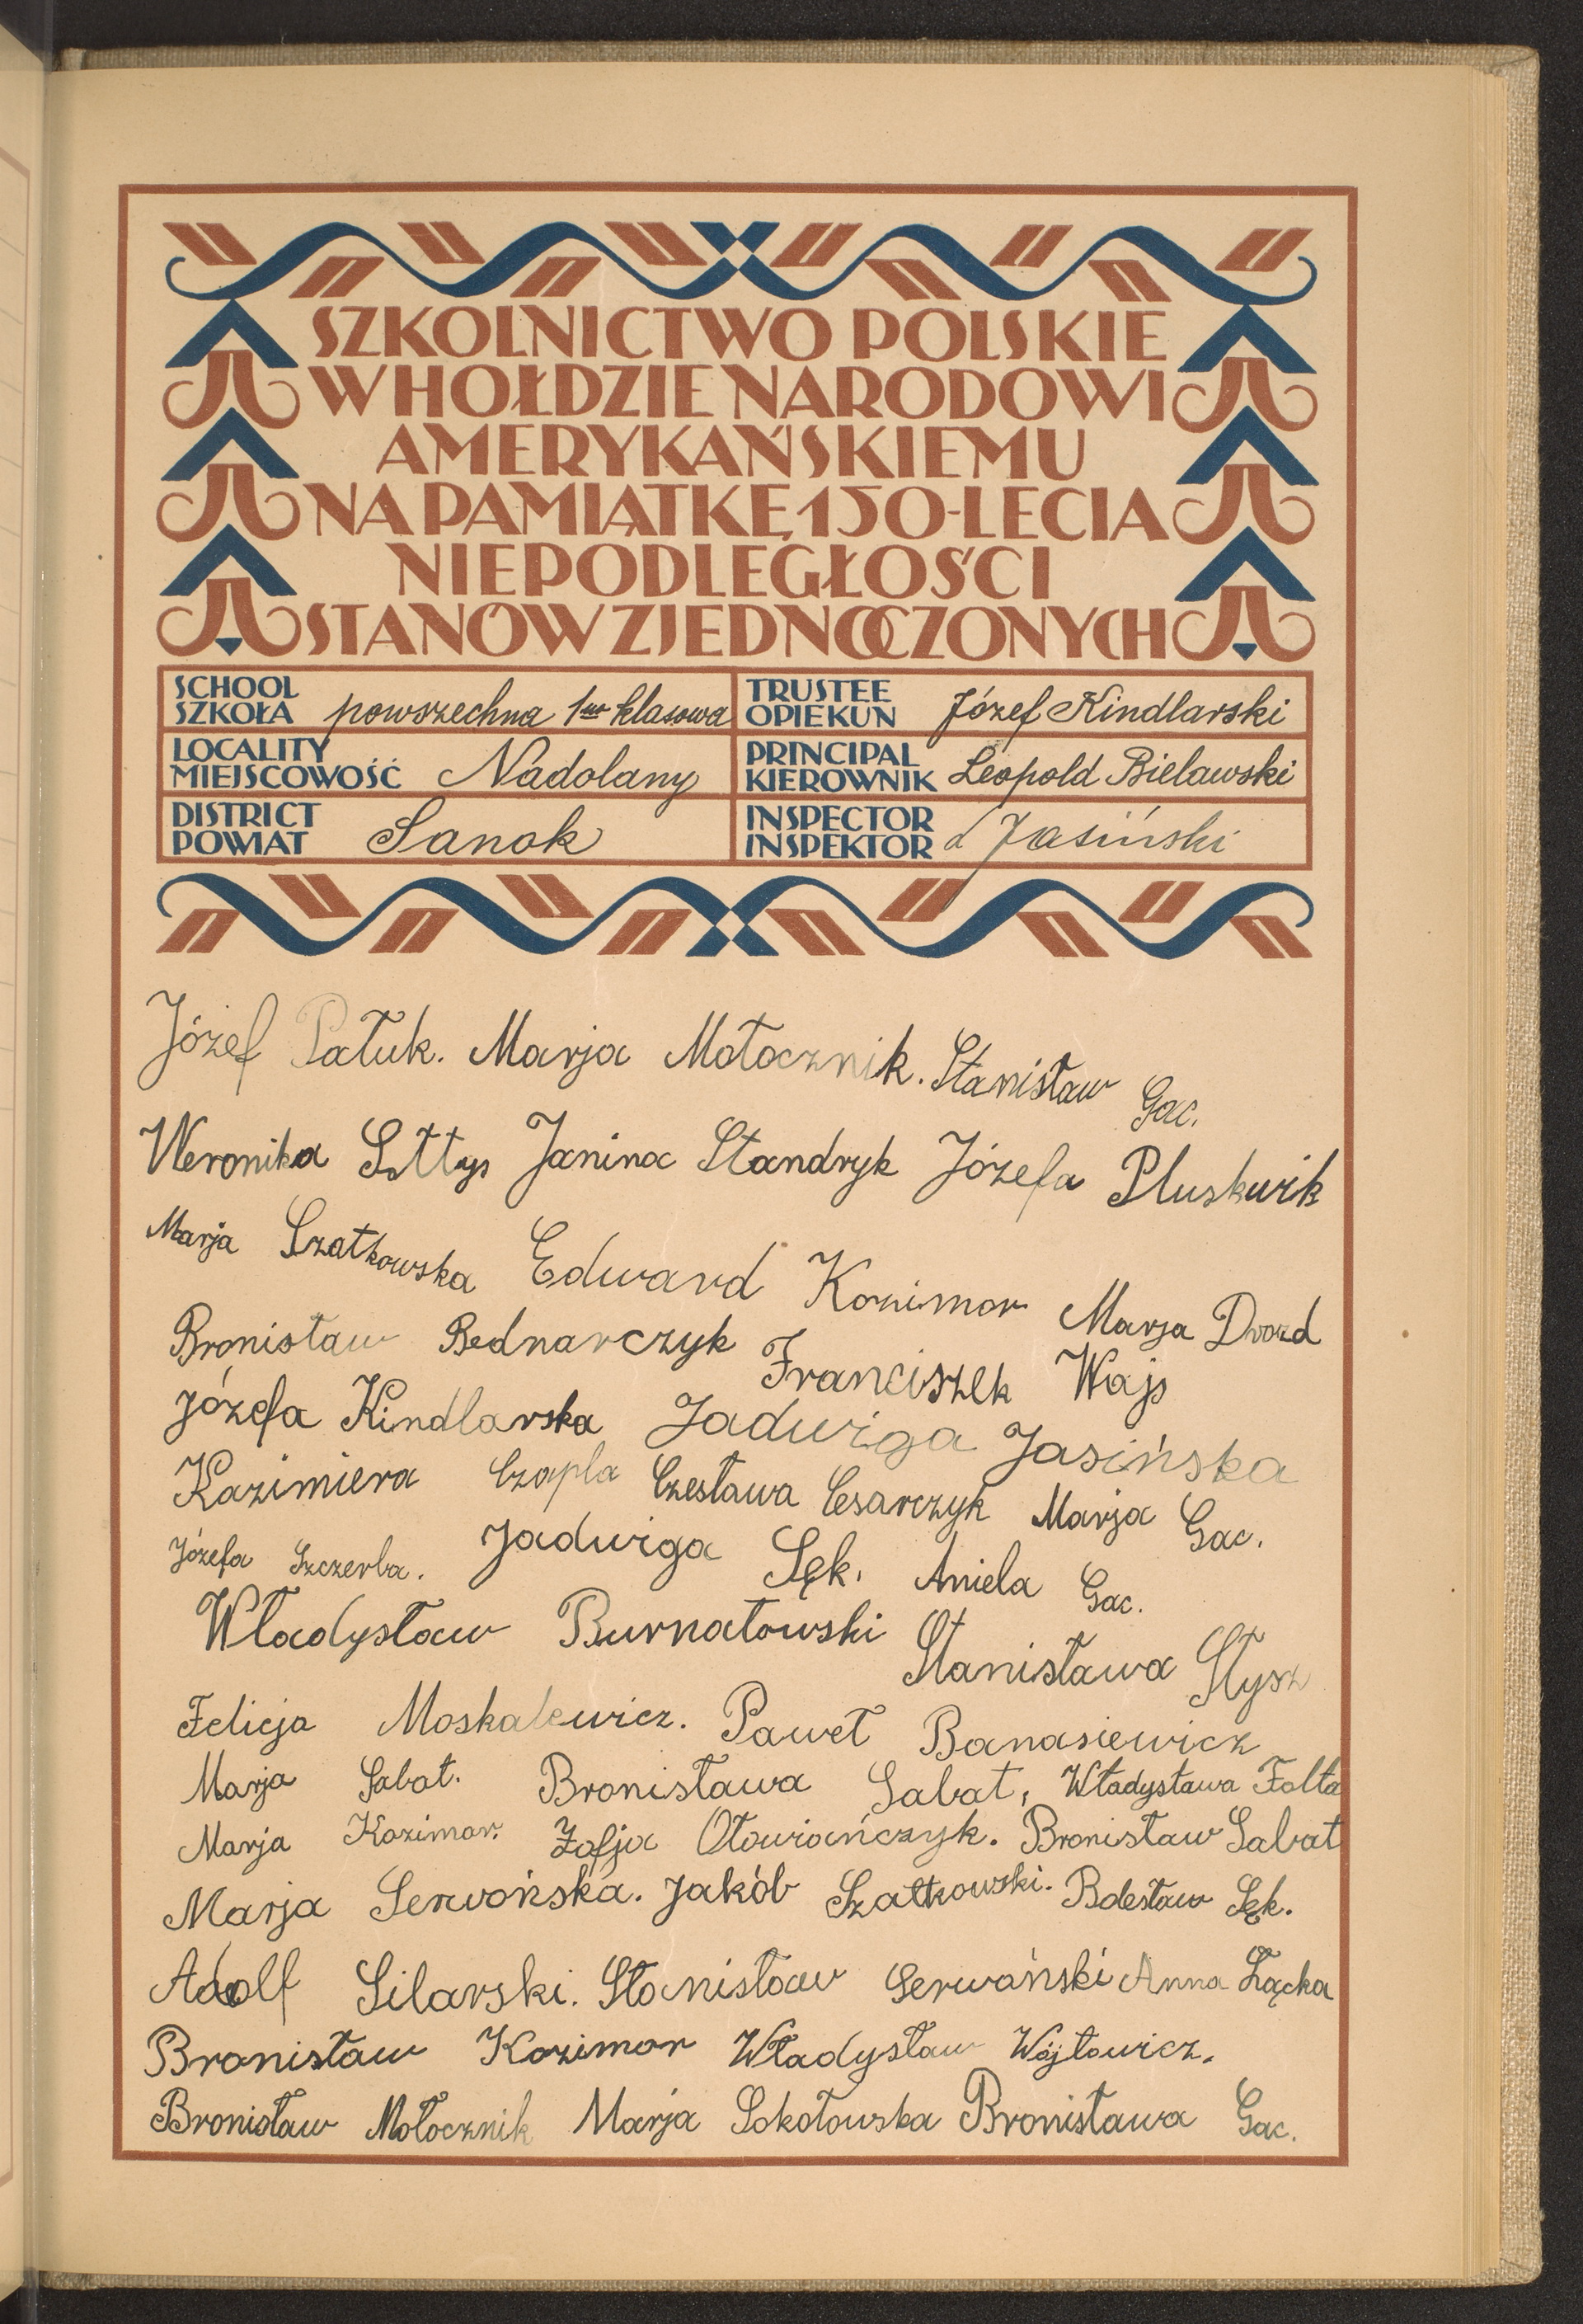 SZKOLNICTWO POLSKIE
W HOŁDZIE NARODOWI
AMERYKAŃSKIEMU
NA PAMIĄTKĘ 150-LECIA
NIEPODLEGŁOŚCI
STANÓW ZJEDNOCZONYCH
SCHOOL
SZKOŁA powszechna 1-no klasowa
TRUSTEE
OPIEKUN Józef Kindlarski
LOCALITY
MIEJSCOWOŚĆ Nadolany
PRINCIPAL
KIEROWNIK Leopold Bielawski
DISTRICT
POWIAT Sanok
INSPECTOR
INSPEKTOR Jasiński
Józef Pałuk. Marja Mołocznik. Stanisław Gac.
Weronika Sołtys Janina Standryk Józefa Pluskwik
Marja Szałkowska Edward Kozimor Marja Drozd
Bronisław Bednarczyk Franciszek Wajs
Józefa Kindlarska Jadwiga Jasińska
Kazimiera Czapla Czesława Cesarczyk Marja Gac.
Józefa Szczerba. Jadwiga Sęk. Aniela Gac.
Władysław Burnatowski Stanisława Słysz
Felicja Moskalewicz. Paweł Banasiewicz
Marja Sabat. Bronisława Sabat, Władysława Folta
Marja Kozimor. Zofja Ołowiańczyk. Bronisław Sabat
Marja Serwońska. Jakób Szałkowski. Bolesław Sęk.
Adolf Silarski. Stanisław Serwański Anna Łącka
Bronisław Kozimor Władysław Wójtowicz.
Bronisław Mołocznik Marja Sokołowska Bronisława Gac.